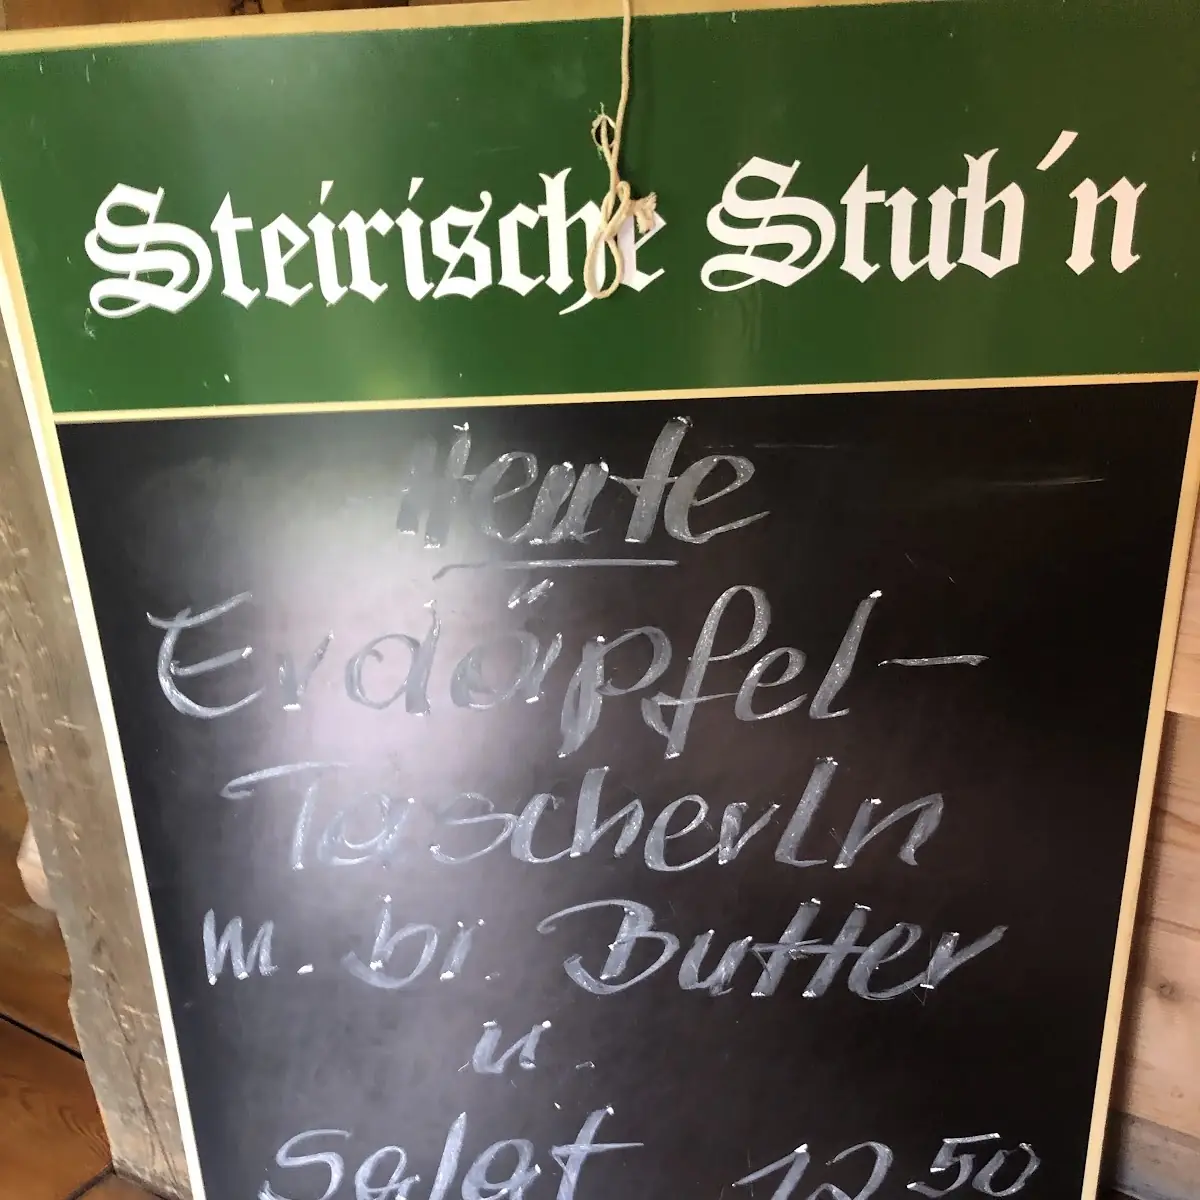 Steirische Stub´n
Heute
Erdäpfel-
Tascherln
m. br. Butter
u.
Salat 12 50